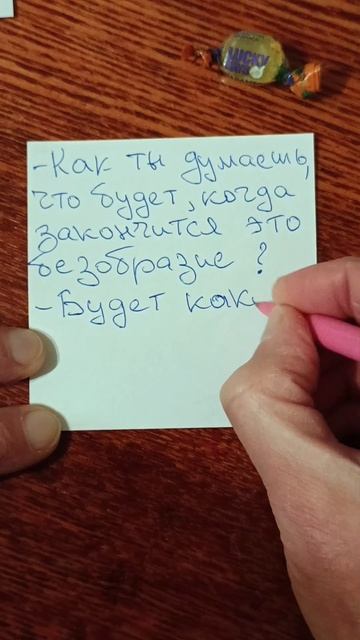 -Как ты думаешь,
что будет, когда
закончится это
безобразие?
-Будет как